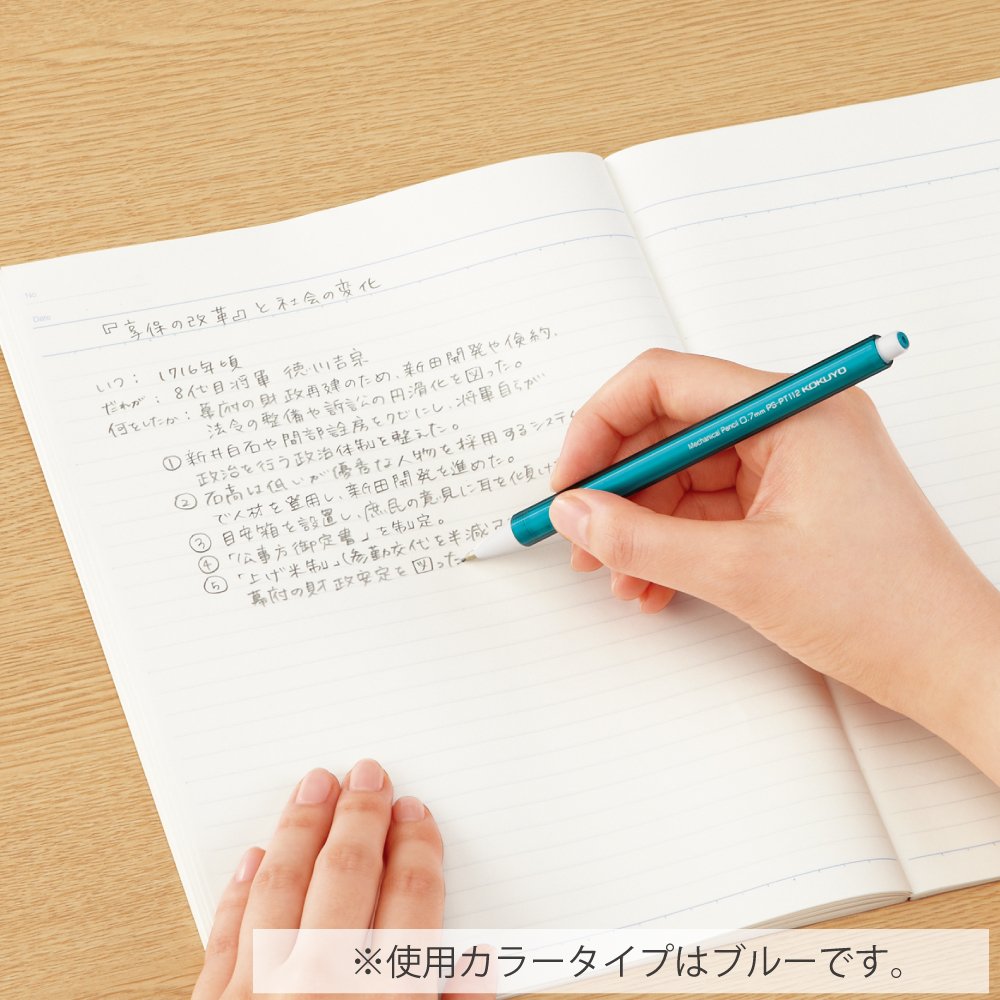 No.
Date
『享保の改革』と社会の変化
いつ： 1716年頃
だれが： 8代目将軍 徳川吉宗
何をしたか： 幕府の財政再建のため、新田開発や倹約、
法令の整備や訴訟の円滑化を図った。
① 新井白石や間部詮房をクビにし、将軍自らが
政治を行う政治体制を整えた。
② 石高は低いが優秀な人物を採用するシステム
で人材を登用し、新田開発を進めた。
③ 目安箱を設置し、庶民の意見に耳を傾け
④ 「公事方御定書」を制定。
⑤ 「上げ米制」(参勤交代を半減
幕府の財政安定を図った
Mechanical Pencil 0.7mm PS-PT112 KOKUYO
※使用カラータイプはブルーです。